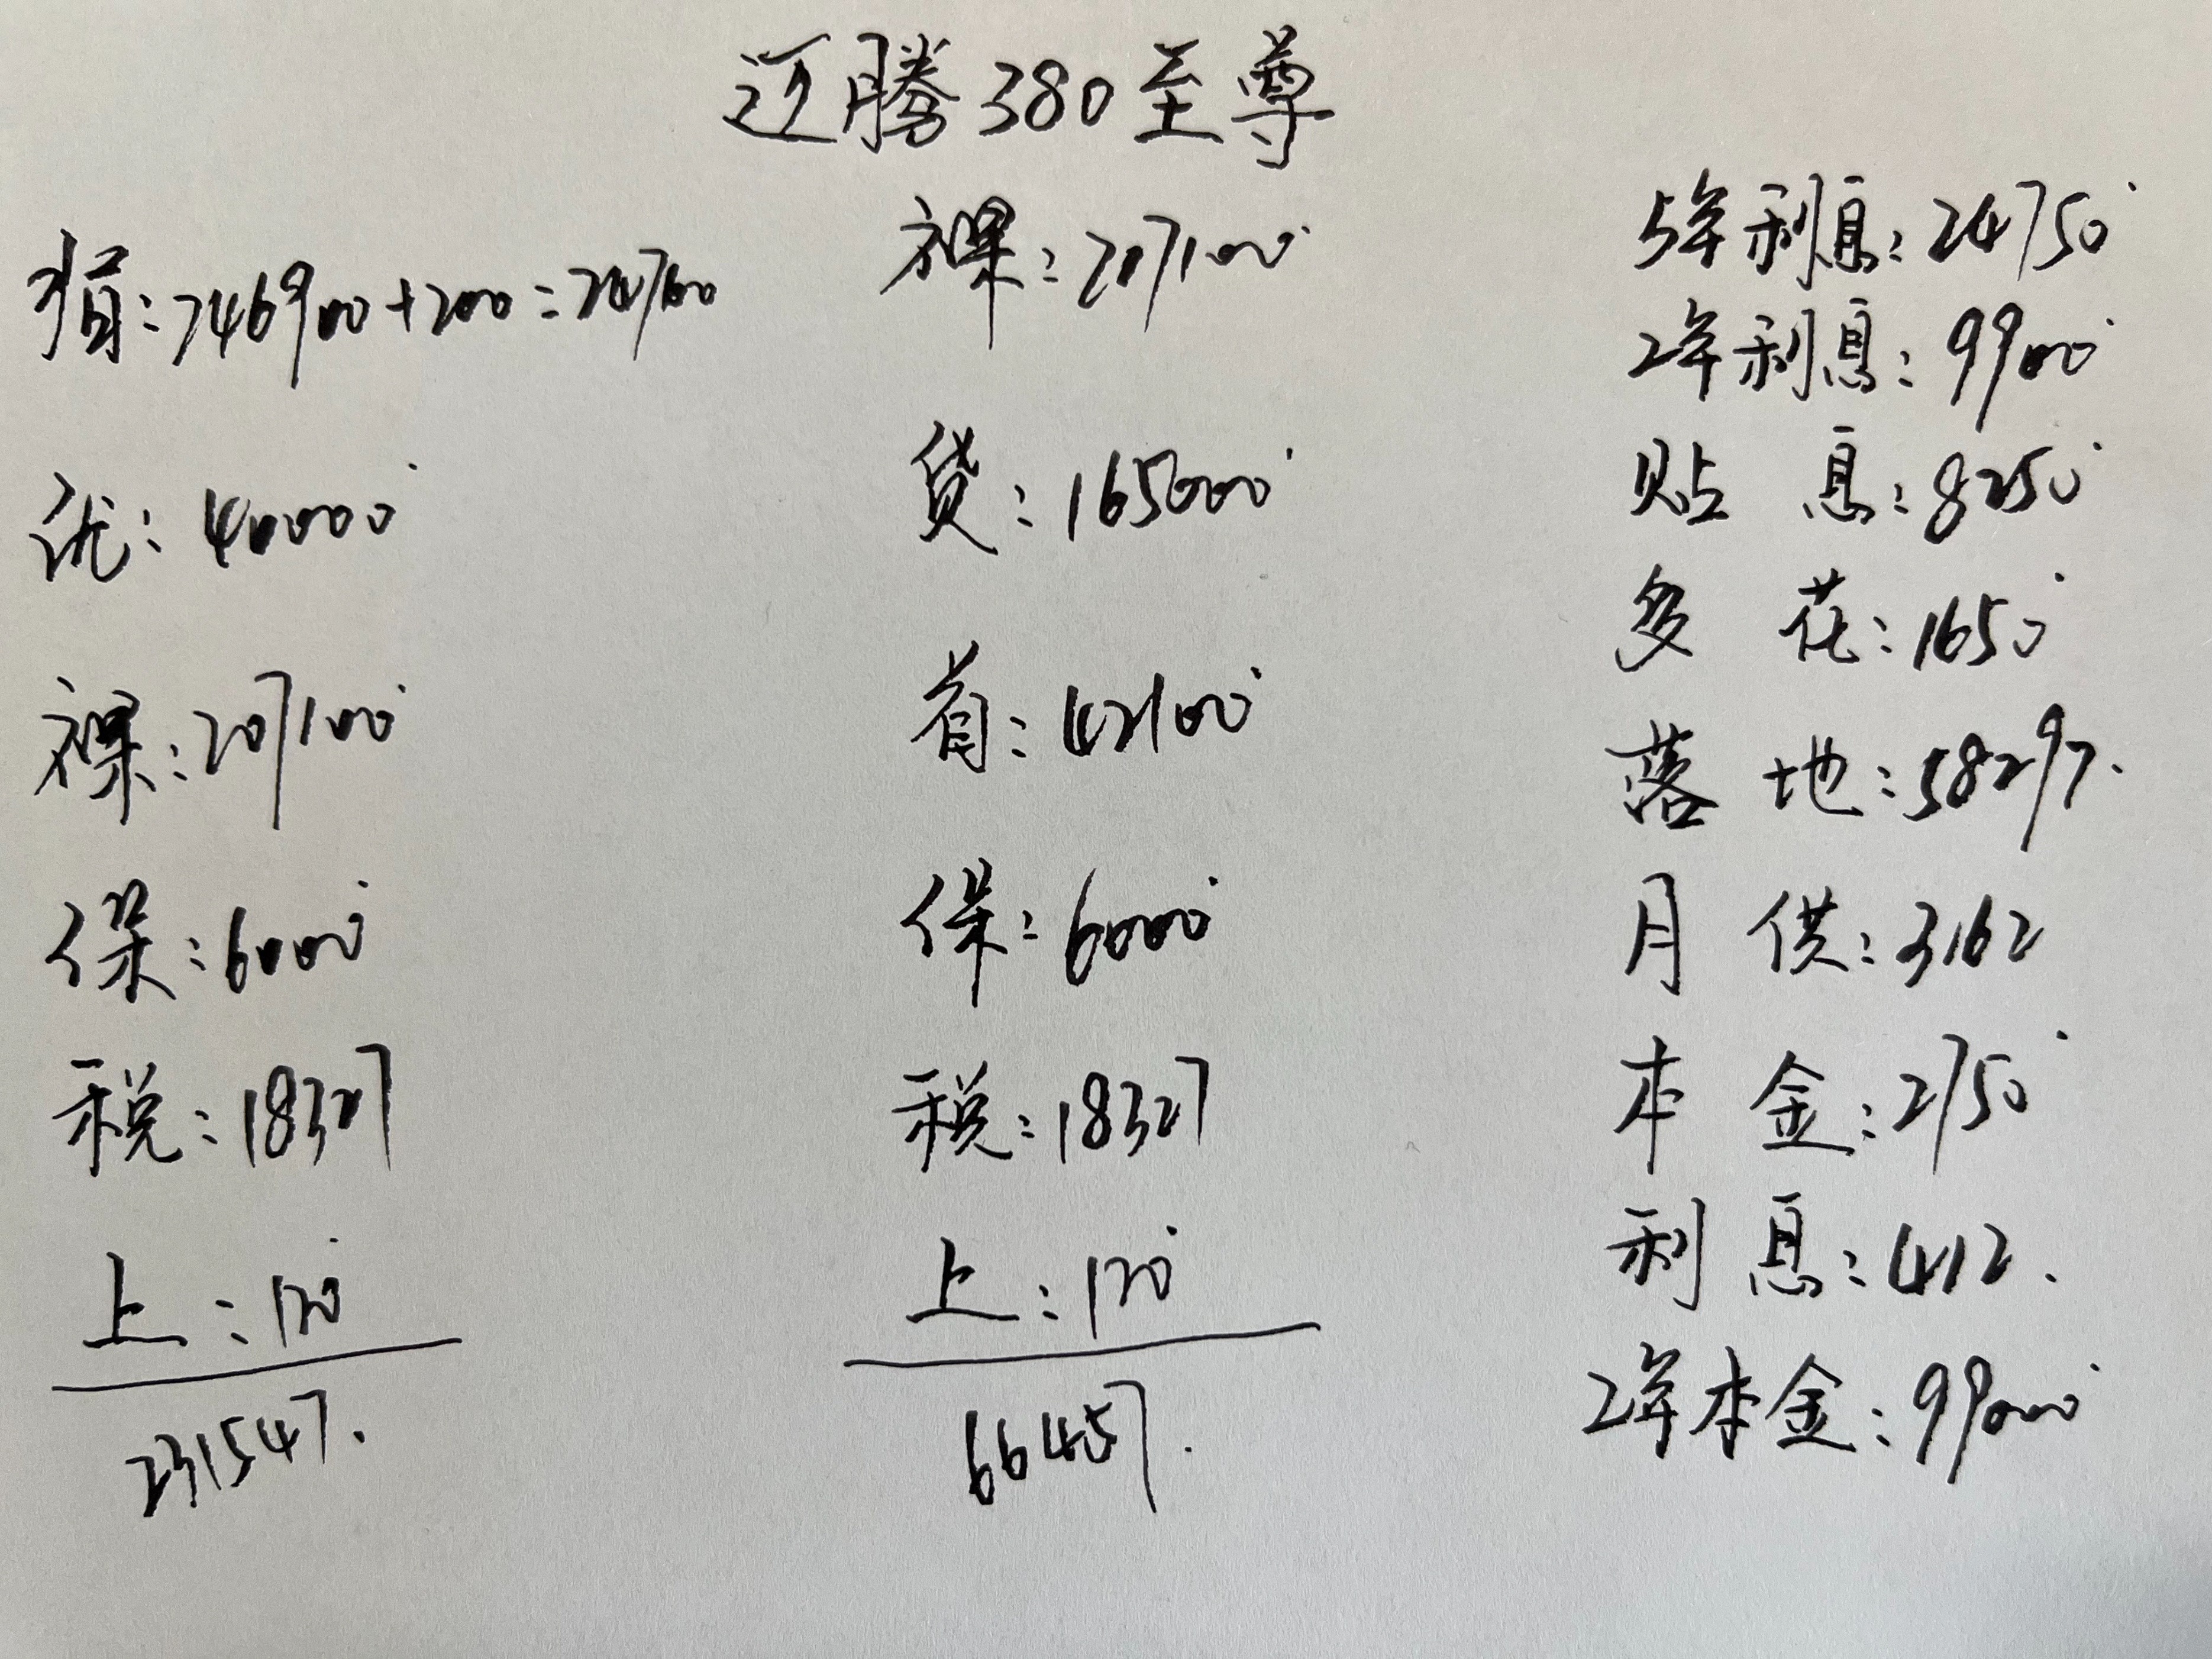 迈腾380至尊
指:246900+200=247100
优:40000
裸:207100
保:6000
税:18327
上:120
231547.
裸:207100
贷:165000
首:42100
保:6000
税:18327
上:120
66457.
5年利息:24750
2年利息:9900
贴息:8250
多花:1650
落地:58297.
月供:3162
本金:2750
利息:412.
2年本金:99000